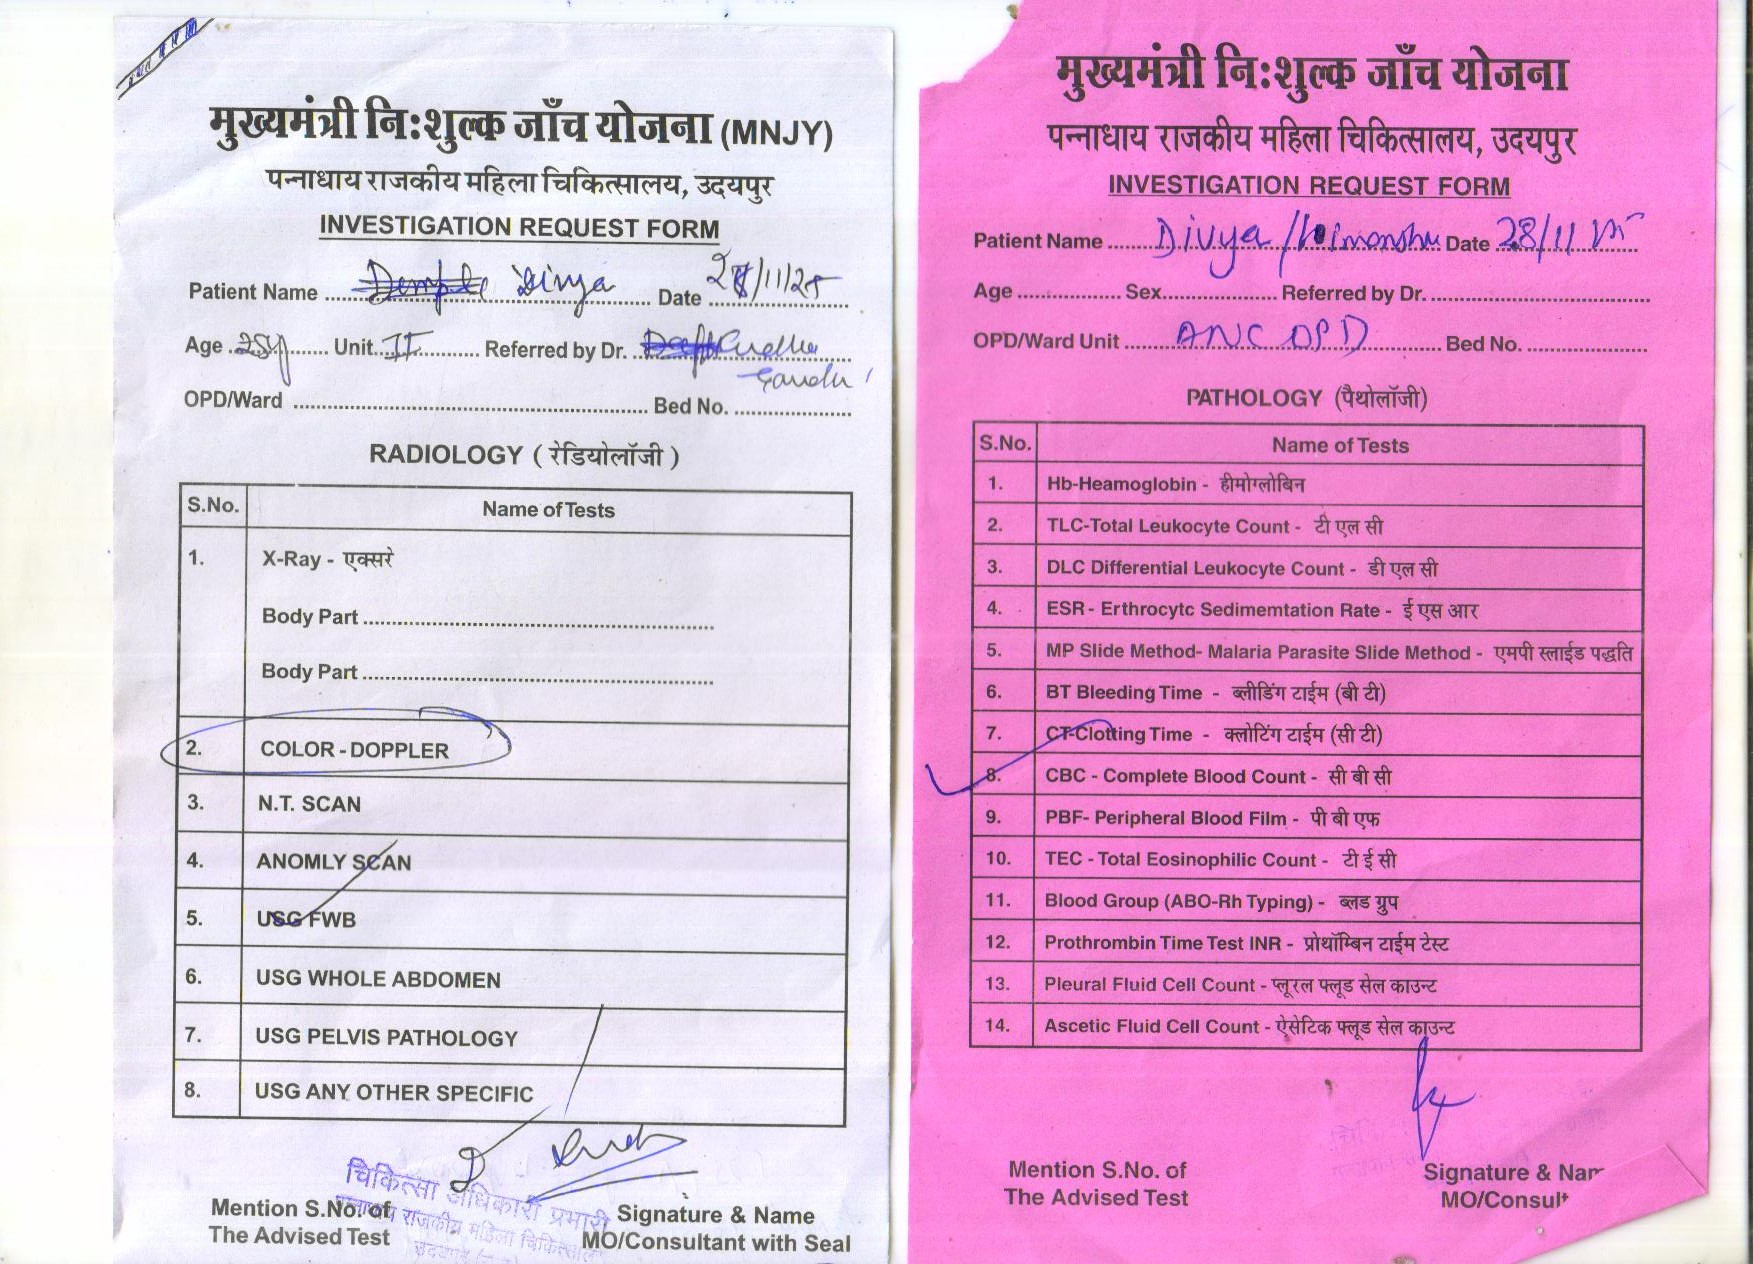 मुख्यमंत्री नि:शुल्क जाँच योजना (MNJY)
पन्नाधाय राजकीय महिला चिकित्सालय, उदयपुर
INVESTIGATION REQUEST FORM
Patient Name Divya Date 28/11/25
Age 25y Unit II Referred by Dr.
Gandhi
OPD/Ward Bed No.
RADIOLOGY ( रेडियोलॉजी )
S.No. Name of Tests
1. X-Ray - एक्सरे
Body Part
Body Part
2. COLOR - DOPPLER
3. N.T. SCAN
4. ANOMLY SCAN
5. USG FWB
6. USG WHOLE ABDOMEN
7. USG PELVIS PATHOLOGY
8. USG ANY OTHER SPECIFIC
2
चिकित्सा अधिकारी प्रभारी
राजकीय महिला चिकित्सालय
Mention S.No. of Signature & Name
The Advised Test MO/Consultant with Seal
मुख्यमंत्री नि:शुल्क जाँच योजना
पन्नाधाय राजकीय महिला चिकित्सालय, उदयपुर
INVESTIGATION REQUEST FORM
Patient Name Divya / Himanshu Date 28/11
Age Sex Referred by Dr.
OPD/Ward Unit ANC OPD Bed No.
PATHOLOGY (पैथोलॉजी)
S.No. Name of Tests
1. Hb-Heamoglobin - हीमोग्लोबिन
2. TLC-Total Leukocyte Count - टी एल सी
3. DLC Differential Leukocyte Count - डी एल सी
4. ESR - Erthrocytc Sedimemtation Rate - ई एस आर
5. MP Slide Method- Malaria Parasite Slide Method - एमपी स्लाईड पद्धति
6. BT Bleeding Time - ब्लीडिंग टाईम (बी टी)
7. CT-Clotting Time - क्लोटिंग टाईम (सी टी)
8. CBC - Complete Blood Count - सी बी सी
9. PBF- Peripheral Blood Film - पी बी एफ
10. TEC - Total Eosinophilic Count - टी ई सी
11. Blood Group (ABO-Rh Typing) - ब्लड ग्रुप
12. Prothrombin Time Test INR - प्रोथॉम्बिन टाईम टेस्ट
13. Pleural Fluid Cell Count - प्लूरल फ्लूड सेल काउन्ट
14. Ascetic Fluid Cell Count - ऐसेटिक फ्लूड सेल काउन्ट
Mention S.No. of Signature & Nam
The Advised Test MO/Consult